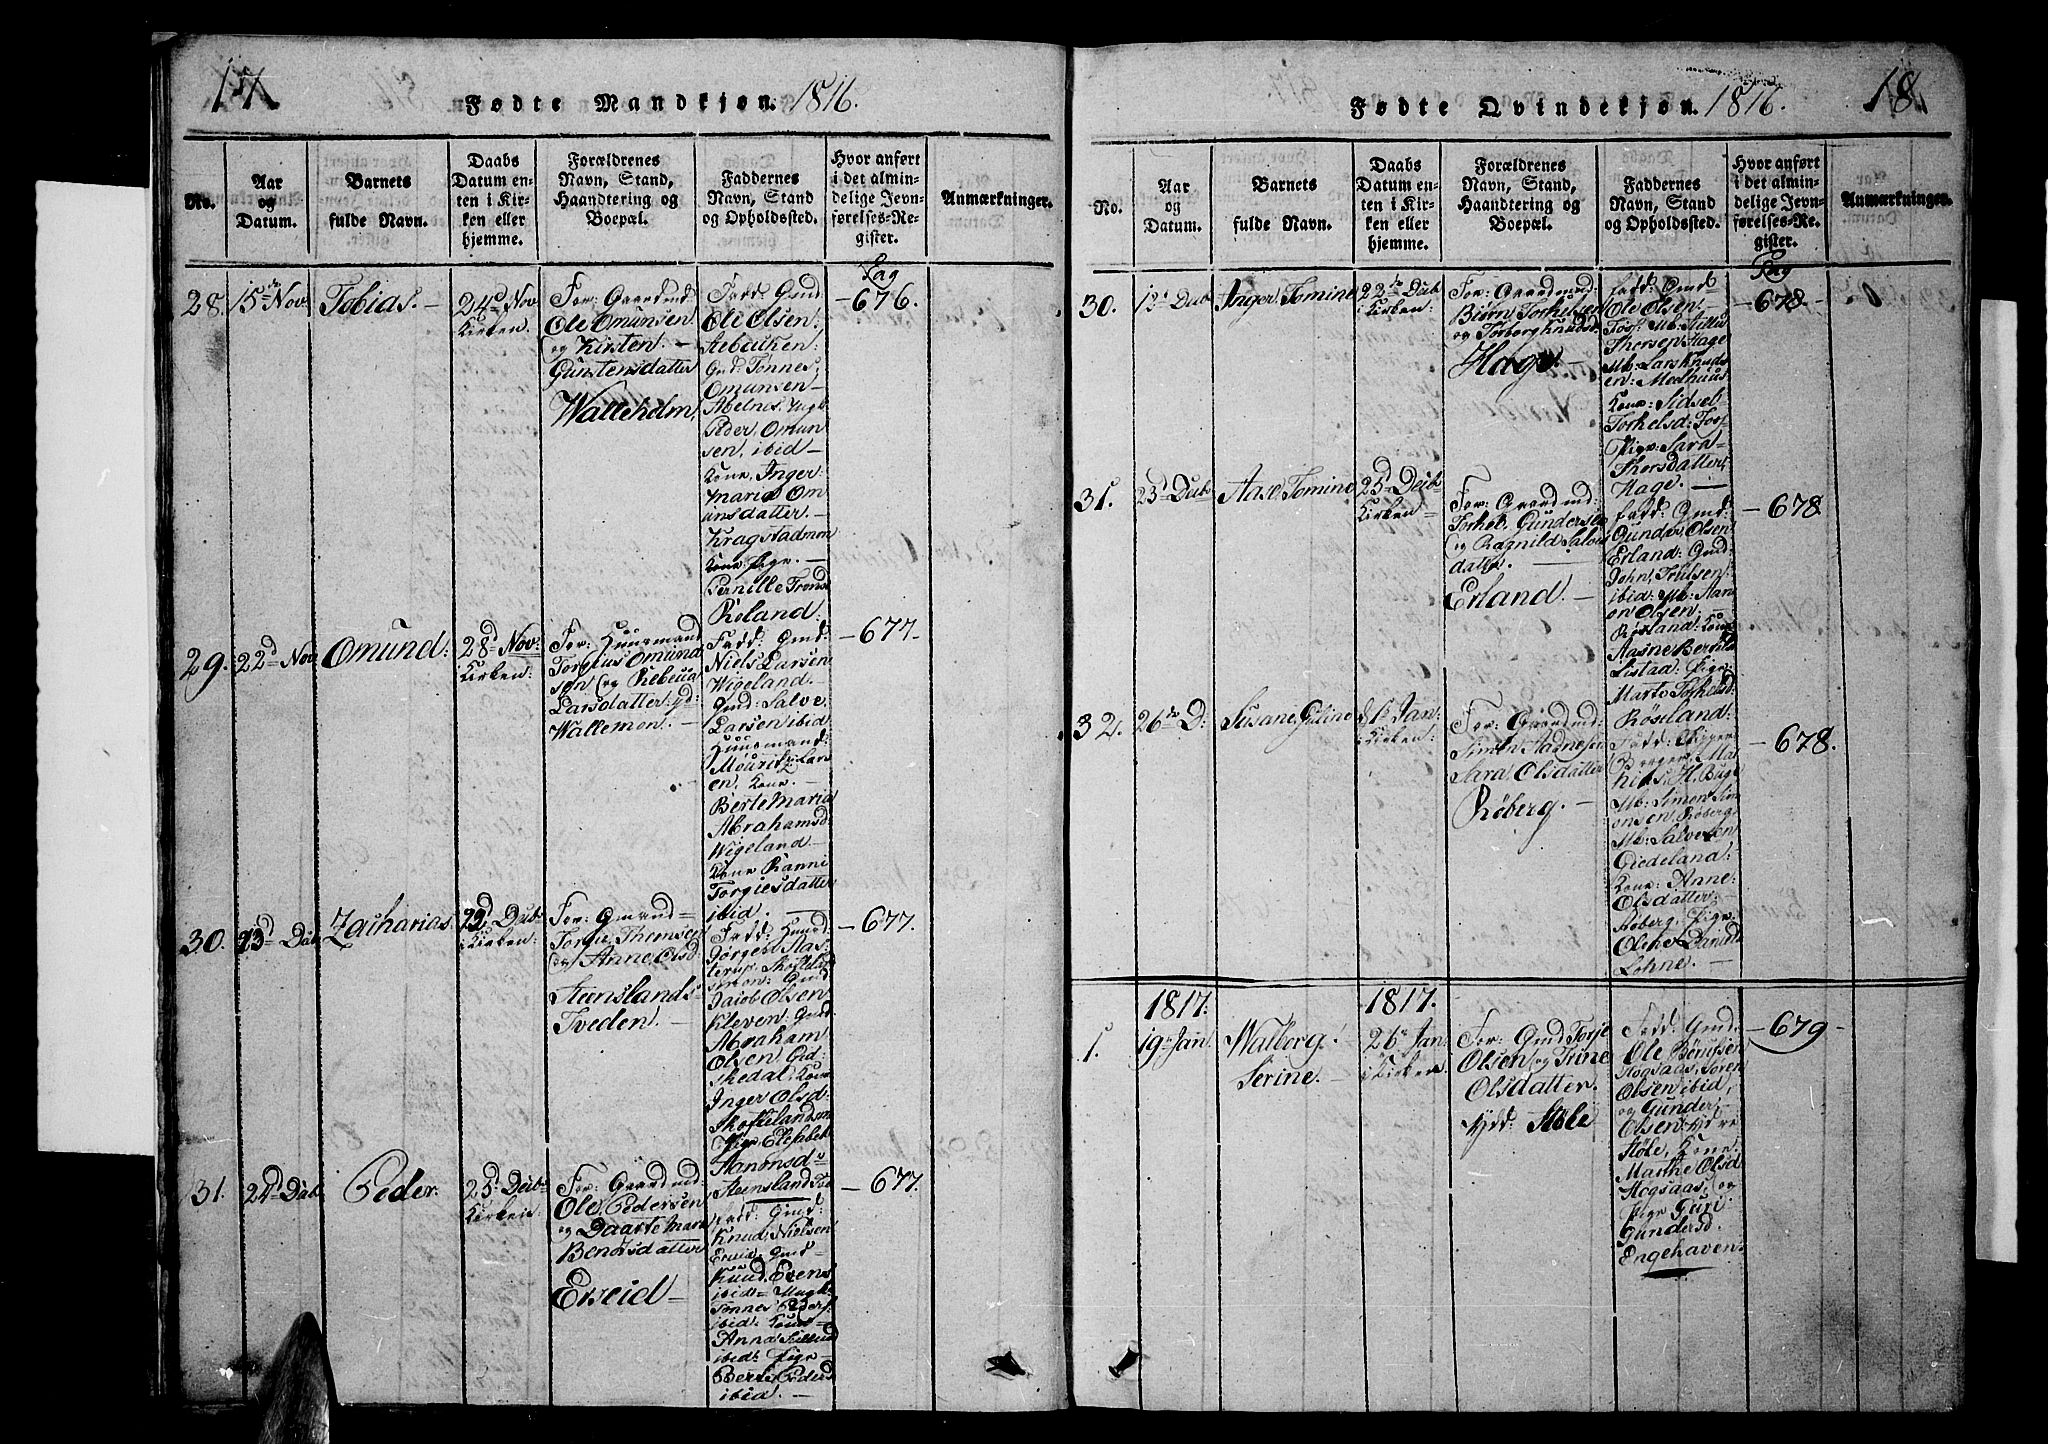 17
Fødte Mandkjøn. 1816.
No.
Aar
og
Datum.
Barnets
fulde Navn.
Daabs
Datum en-
ten i Kir-
ken eller
hjemme.
Forældrenes
Navn, Stand,
Haandtering og
Boepæl.
Faddernes
Navn, Stand
og Opholdssted.
Hvor anført
i det almin-
delige Jevn-
førelses-Re-
gister.
Anmærkninger.
Pag
28.
15de Nov
Tobias. –
24d Nov
Kirken.
For: Gaardmd
Ole Omunsen
og Kirsten. –
Gunstensdatter
Walleholm,
Fadd: Gmd
Ole Olsen,
Gmd: Tønnes
Omunsen –
Abelnes,
Peder, Omun
sen, ibid –
Kone, Inger
Maria Om
unsdatter. –
Kragstadmon
Kone
Pernille
Roland.
– 676.
29.
22d Nov
Omund:
28d Nov:
Kirken:
For: Huusmand
Torgius Omund
sen og Rebecca
Larsdatter
Wallemon. –
Fadd: Gmd:
Niels Larsen
Wigeland.
Gmd: Salve
Larsen ibid
Huusmand:
Mouritz Lars
en. Kone. –
Berte Maria
Abrahamsd
Wigeland –
Kone Ranni
Torgiesdatter
ibid. –
– 677.
30.
23d Dcb
Zacharias.
29d Dcb:
i Kirken:
For: Gmand
Torgie Thomsen
og Anne Olsd
Steinslands
Tveden. –
Fadd:
Jørgen Aas
terup,
Gmd
Jacob Olsen
Kleven: Gmd:
Abraham
Olsen,
Inger Olsd:
Pige, Elisabeth
Aanonsd:
Steensland
– 677.
31.
24d Dcb.
Peder.
25d Decb
Kirken:
For: Gaardmd:
Ole, Pedersen
og Daarte Mari
Bentsdatter
Erseid –
Fadd: Gmd:
Knud, Nielsen
Erseid, Gmd
Knud, Evens
ibid
Tønnes Peders
ibid: Kone
Anna
ibid: Pige
Berte Peders
ibid. –
– 677.
18.
Fødte Qvindekjøn. 1816.
No.
Aar
og
Datum.
Barnets
fulde Navn.
Daabs
Datum en-
ten i Kir-
ken eller
hjemme.
Forældrenes
Navn, Stand,
Haandtering og
Boepæl.
Faddernes
Navn, Stand
og Opholdssted.
Hvor anført
i det almin-
delige Jevn-
førelses-Re-
gister.
Anmærkninger.
Pag
30.
12d Dcb.
Inger Tomine
22de Dcb
i Kirken:
For: Gaardmd:
Biørn Torkelsen
og Torborg Knudsd.
Hage. –
Fadd: Gmd
Ole Olsen,
Thorsen Hage
Lars Knuds
en: Medhuus
Kone: Sidsel
Torkelsd: Foss
Pige: Sara
Thorsdatter,
Hage. –
– 678.
31.
23d Dcb
Aase Tomine
25d Decb
Kirken –
For: Gaardmd:
Torkel Gundersen
og Ragnild Salves
datter. –
Erland. –
Fadd: Gmd:
Gunder Olsen
Erland: Gmd:
John,
ibid: Mb: Aan
on Olsen:
Røsland: Kone
Aasne
Listad: Pige
Marte Torkelsd:
Røseland:
– 678
32.
26de D:
Susane, Guline
1te Jan:
i Kirken:
For: Gaardmd:
Simen Aadnesen
Sara, Olsdatter
Røberg. –
Fadd: Skipper
Mb: Simon Sim
onsen, Røberg
Mb: Salvesen
Giedeland:
Kone: Anne
Olsdatter –
Røberg, Pige
Olene Danield
Lohne. –
– 678.
1817.
1817.
1.
19de Jan
Walborg
Serine. –
26de Jan
i Kirken
For: Gmd Torje
Olsen og Trine
Olsdatter.
Støle
Fadd: Gmd:
Ole Børufsen
Hogsaas, Søren
Olsen ibid,
og Gunder
Olsen
Støle, Kone
Marthe Olsd
Hogsaas, og
Pige Guri
Gundersd.
Engehaven.
– 679 –